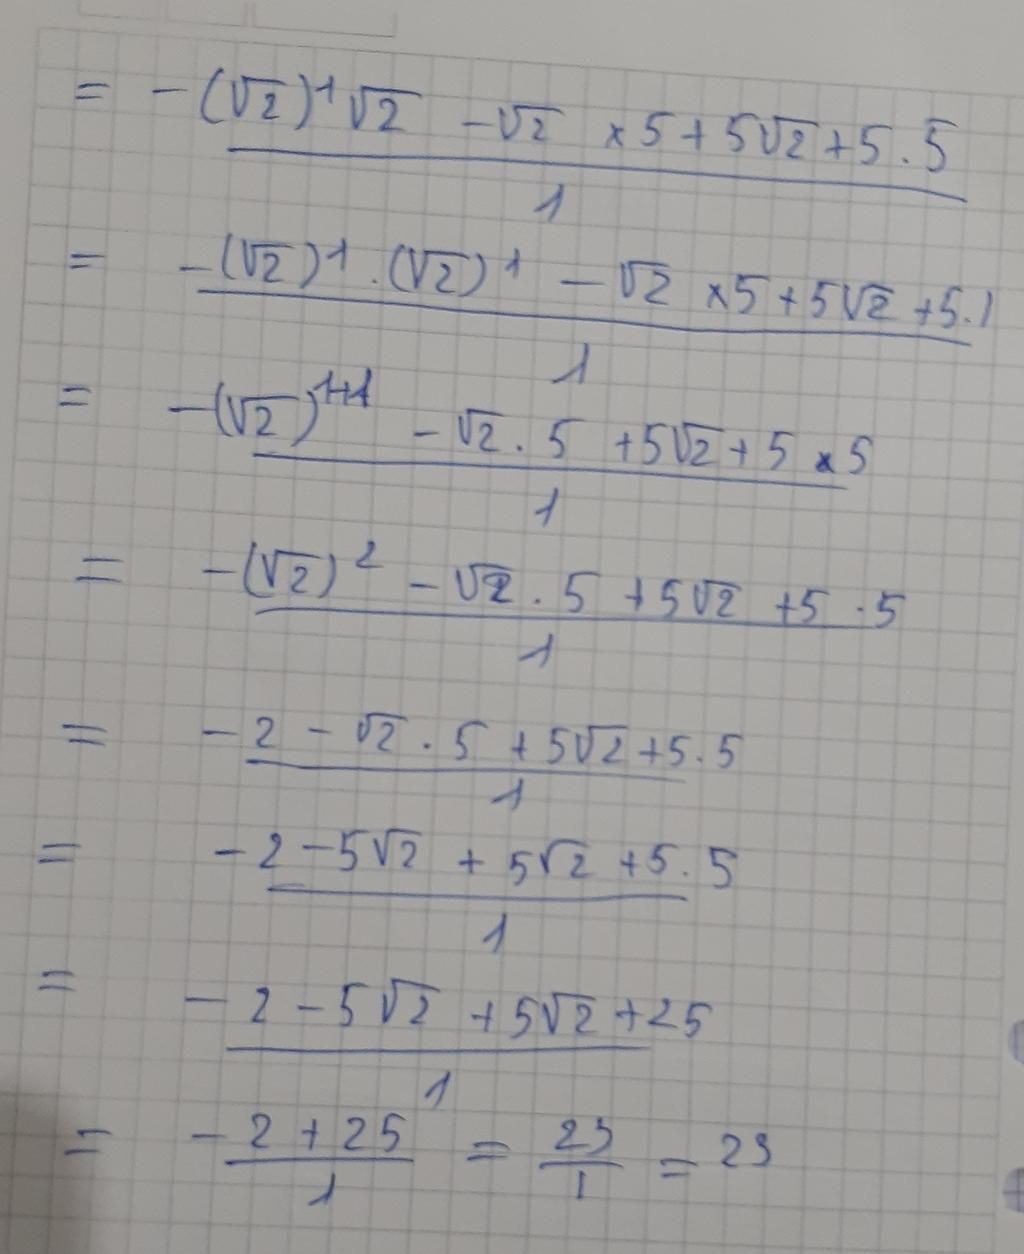 = -(√2)¹√2 -√2 ×5+5√2+5.5
1
= -(√2)¹.(√2)¹ -√2 ×5+5√2 +5.)
1
= -(√2)¹⁺¹ -√2.5 +5√2+5 ×5
1
= -(√2)² -√2.5 +5√2 +5.5
1
= -2 -√2.5 +5√2+5.5
1
= -2-5√2 +5√2+5.5
1
= -2-5√2 +5√2+25
1
= -2+25 = 23 = 23
1 1